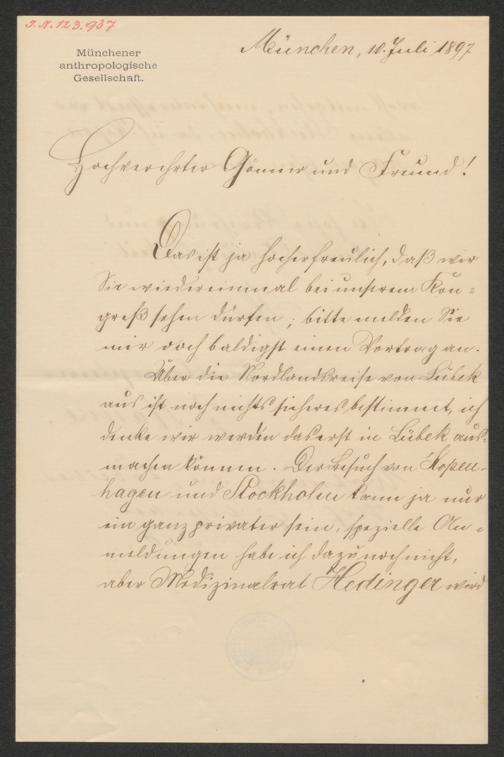 I.N. 123.937
Münchener
anthropologische
Gesellschaft.
München, 10. Juli 1897
Hochverehrter Gönner und Freund!
Das ist ja hocherfreulich, daß wir
Sie wiedereinmal bei unserem Kon-
greß sehen dürfen; bitte melden Sie
mir doch baldigst einen Vortrag an.
Über die Nordlandsreise von Lübek
aus ist noch nichts sicheres bestimmt, ich
denke wir werden das erst in Lübek aus-
machen können. Der Besuch von Kopen-
hagen und Stockholm kann ja nur
ein ganz privater sein, spezielle An-
meldungen habe ich dazu noch nicht,
aber Medizinalrat Hedinger wird